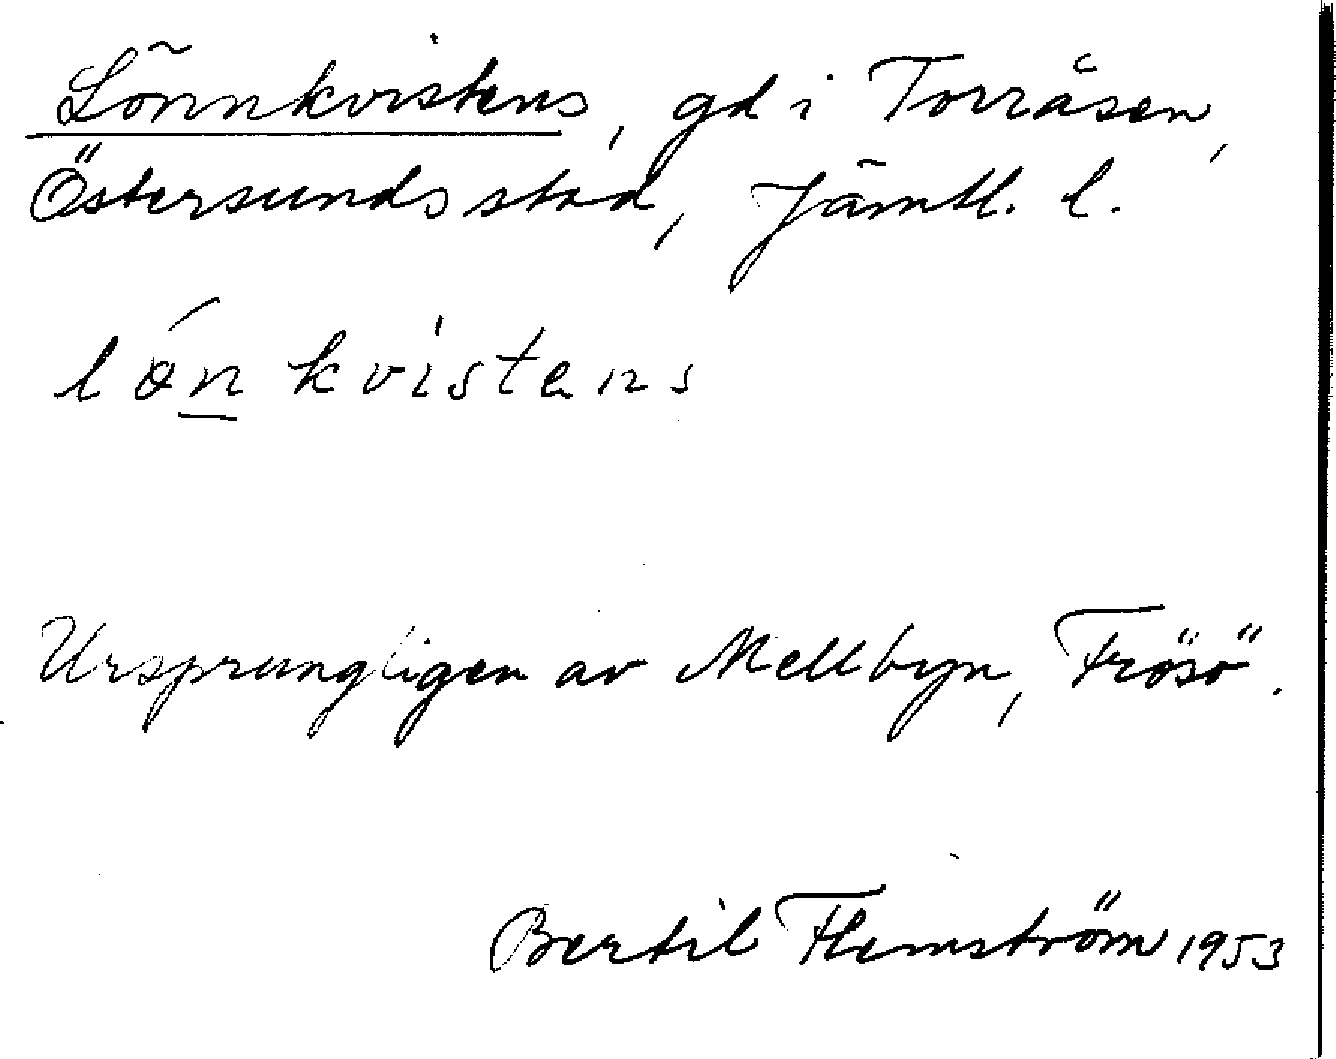 Lönnkvistens, gd i Torråsen,
Östersunds stad, Jämtl. l.
lǿn kvistens
Ursprungligen av Mellbyn, Frösö.
Bertil Flemström 1953